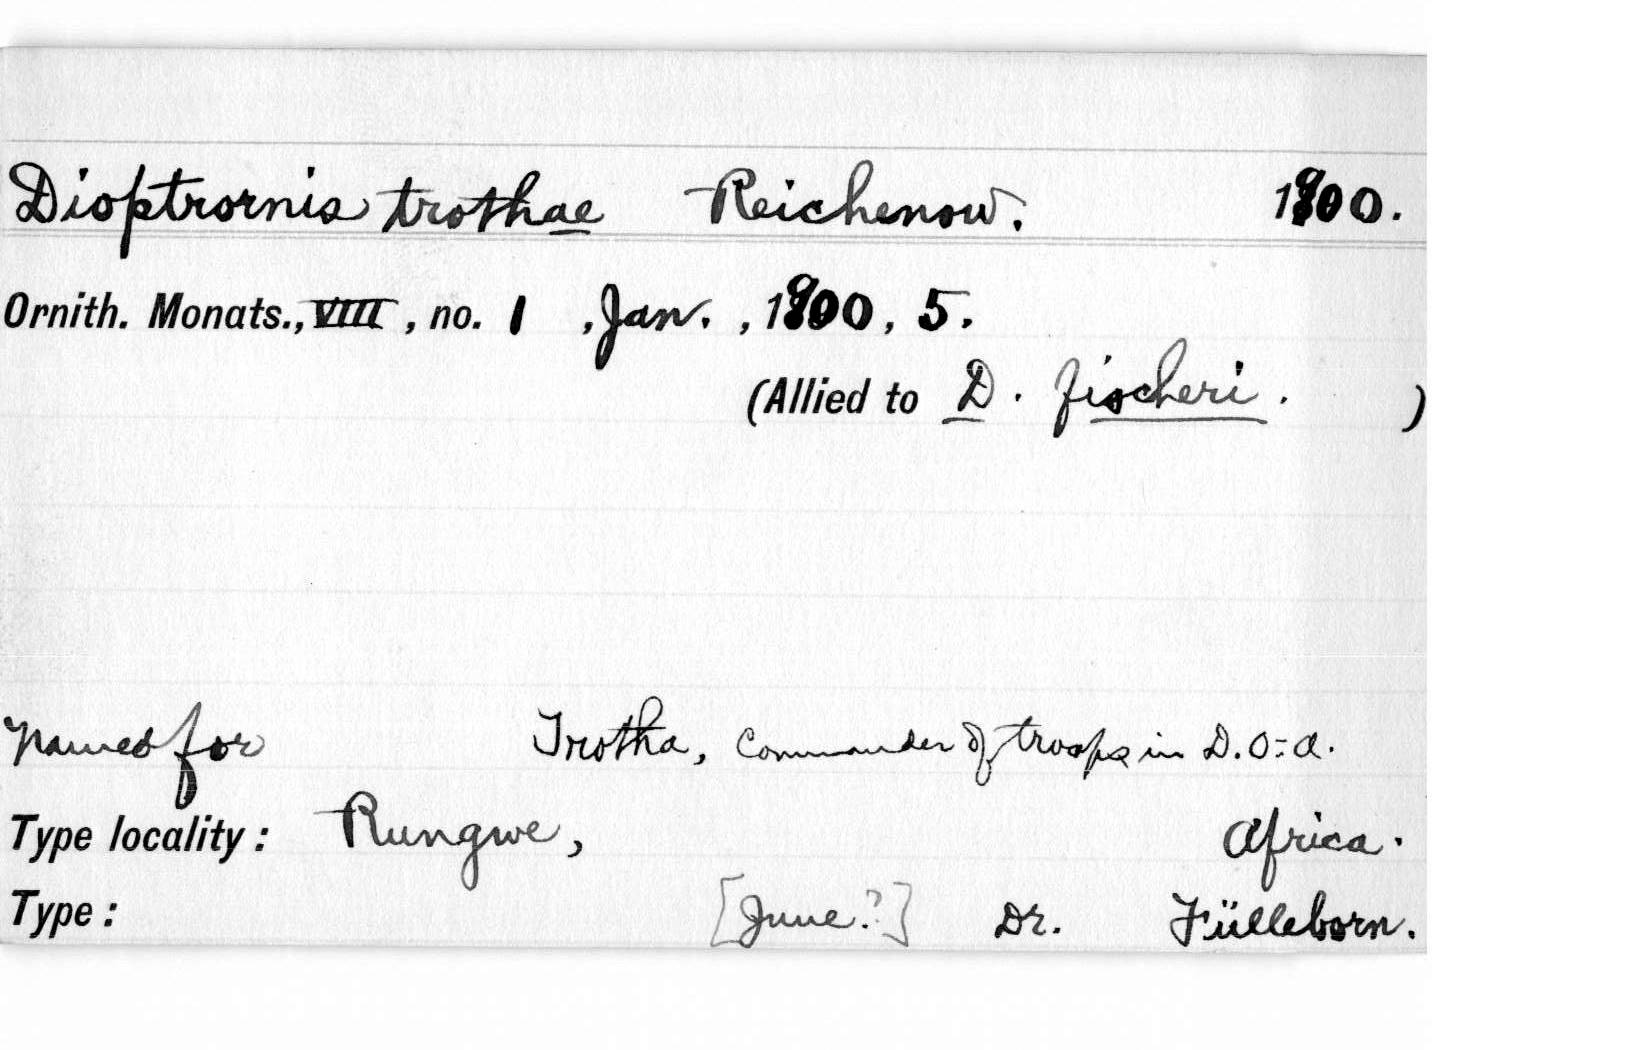 Dioptrornis trothae Reichenow. 1900.
Ornith. Monats., VIII, no. 1, Jan., 1900, 5.
(Allied to D. fischeri. )
Named for Trotha, Commander of troops in D.O=a.
Type locality: Rungwe, Africa.
Type: [June?] Dr. Fülleborn.